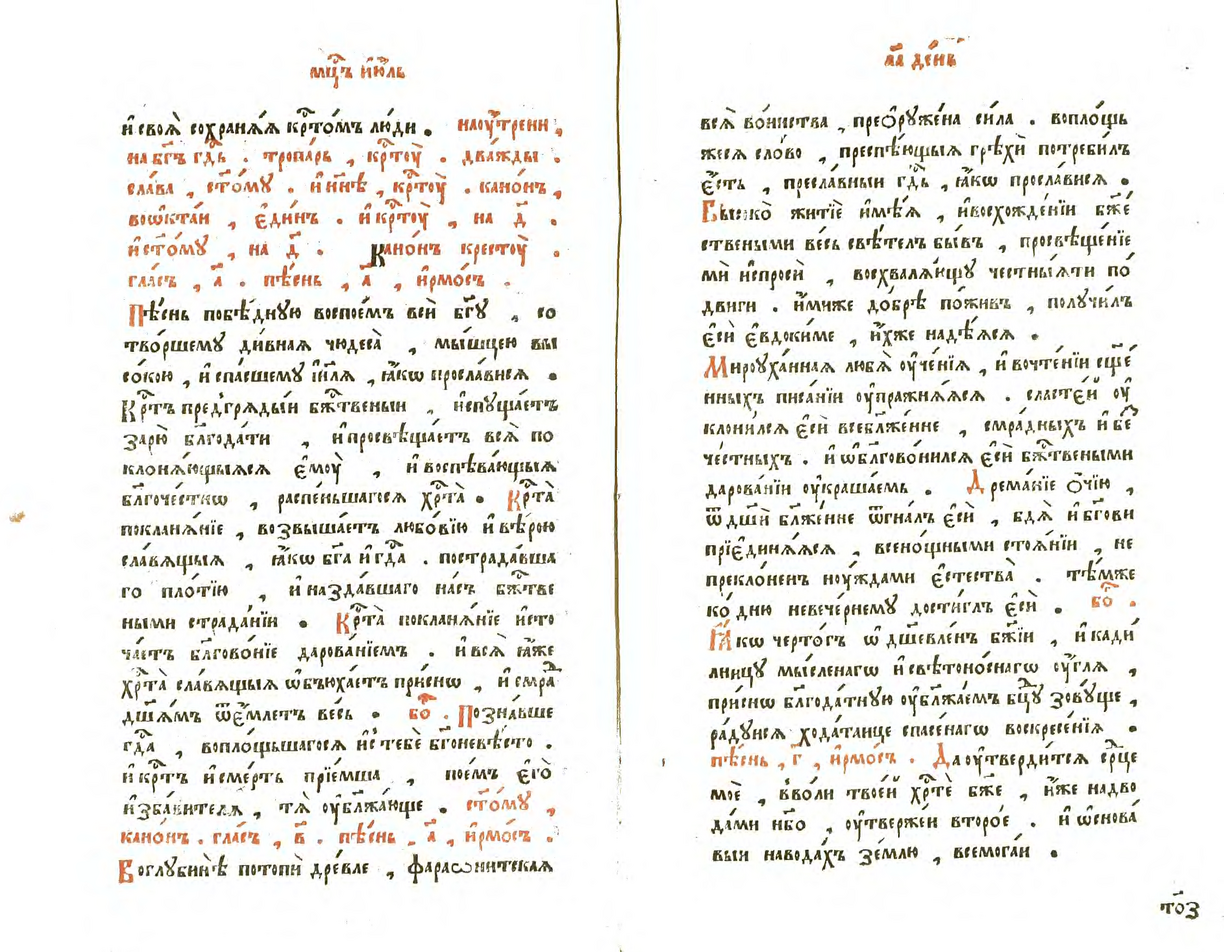 мц҃ъ і҆ю҆́ль
и҆ своѧ̀ сохранѧ́ѧ кр҃то́мъ лю́ди . наоу҆́трени ,
на бг҃ъ гд҇ь . тропа́рь , кр҃тоу̀ . два́жды .
сла́ва , ст҃о́му . и҆ нн҃ѣ , кр҃тоу̀ . кано́нъ ,
воѡ҆кта́и , є҆ди́нъ . и҆ кр҃тоу̀ , на д҃ .
и҆ ст҃о́му , на д҃ . Кано́нъ крестоу̀ .
гла́съ , а҃ . пѣ́снь , а҃ , і҆рмо́съ .
Пѣ́снь побѣ́дную воспои́мъ всѝ бг҃ꙋ , со
тво́ршему ди́вная чюдеса̀ , мы́шцею вы
со́кою , и҆ спа́сшему і҆и҃лѧ , ꙗ҆́кѡ просла́висѧ .
Кр҃тъ предгрѧды́и бж҃твеныи , и҆спꙋща́етъ
зарю̀ блг҃ода́ти , и҆ просвѣща́етъ всѧ̀ по
клонѧ́ющыѧсѧ є҆моу̀ , и҆ воспѣва́ющыѧ
блг҃оче́стнѡ , распе́ньшагосѧ хр҃та̀ . Кр҃та̀
поклана́нїе , возвыша́етъ любо́вїю и҆ вѣ́рою
сла́вѧщыѧ , ꙗ҆́кѡ бг҃а и҆ гд҃а . пострада́вша
го пло́тїю , и҆ назда́вшаго на́съ бж҃тве
ными страда́нїи . Кр҃та̀ поклана́нїе и҆сто
ча́етъ блг҃ово́нїе дарова́нїемъ . и҆ всѧ̀ ꙗ҆́же
хр҃та̀ сла́вѧщыѧ ѡ҆бъюха́етъ при́снѡ , и҆ смра́
дш҃ѧ́мъ ѿе҆́млетъ весь . бо҃ . Позна́вше
гд҃а , воплощьшагосѧ и҆с тебѐ бг҃оневѣ́сто .
и҆ кр҃тъ и҆ сме́рть прїе́мша , пое́мъ є҆го̀
и҆зба́вителѧ , тѧ̀ оу҆блажа́юще . ст҃о́му ,
кано́нъ . гла́съ , в҃ . пѣ́снь , а҃ , і҆рмо́съ .
Воглꙋбинѣ̀ потопѝ дре́вле , фараѡни́тская
ла҃ де́нь
всѧ̀ во́инства , преѻ҆рꙋже́на си́ла . вопло́щь
жесѧ сло́во , преспѣ́ющыѧ грѣхѝ потреби́лъ
є҆́сть , пресла́вныи гд҇ь , ꙗ҆́кѡ просла́висѧ .
Высоко̀ житїѐ и҆мѣ́ѧ , и҆ восхожде́нїи бж҃е
ствеными весь свѣ́телъ бы́въ , просвѣще́нїе
мѝ и҆спросѝ , восхвалѧ́ющꙋ че́стныѧти по́
двиги . и҆́миже до́брѣ пожи́въ , полꙋчи́лъ
є҆сѝ є҆вдоки́ме , и҆́хже надѣ́ѧсѧ .
Мироуха́нная любѧ̀ оу҆че́нїѧ , и҆ вочте́нїи сщ҃е́
нныхъ писа́нїи оу҆пражнѧ́ѧсѧ . сласте́и оу҆
клони́лсѧ є҆сѝ всеблаже́нне , смра́дныхъ и҆ бе́
че́стныхъ . и҆ ѡ҆блг҃ово́нилсѧ є҆сѝ бж҃твеными
дарова́нїи оу҆краша́емь . Дрема́нїе ѻ҆́чїю ,
ѿ дш҃ѝ бл҃же́нне ѿгна́лъ є҆сѝ , бдѧ̀ и҆ бг҃ови
прїединѧ́ѧсѧ , всенощными стоѧ́нїи , не
прекло́ненъ ноу҆́ждами є҆стества̀ . тѣ́мже
ко дню невече́рнему дости́глъ є҆сѝ . бо҃ .
Ꙗ҆́кѡ черто́гъ ѡ҆дш҃евле́нъ бж҃їи , и҆ кади́
лницꙋ мы́сленагѡ и҆ свѣтоно́снагѡ оу҆́глѧ ,
при́снѡ блг҃ода́тную оу҆блажа́емъ бц҃ꙋ зовꙋще ,
ра́дꙋисѧ хода́таице спасе́нагѡ воскресе́нїѧ .
пѣ́снь , г҃ , і҆рмо́съ . Да оу҆тверди́тсѧ ср҃це
моѐ , в во́ли твое́й хр҃тѐ бж҃е , и҆́же надво
да́ми нб҃о , оу҆тверже́и второ́е . и҆ ѡ҆снова́
выи навода́хъ зе́млю , всемога́и .
то҃з